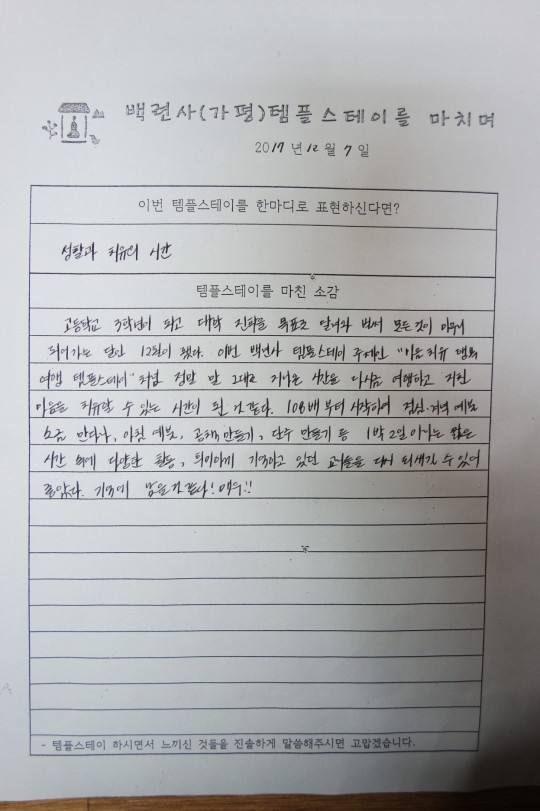 백련사(가평)템플스테이를 마치며
2017년 12월 7일
이번 템플스테이를 한마디로 표현하신다면?
성찰과 치유의 시간
템플스테이를 마친 소감
고등학교 3학년이 되고 대학 진학을 목표로 달려와 벌써 모든것이 마무리
되어가는 달인 12월이 됐다. 이번 백련사 템플스테이 주제인 "마음치유
여행 템플스테이"처럼 정말 말 그대로 지나온 시간을 다시금 여행하고 지친
마음을 치유할 수 있는 시간이 된 것 같다. 108배부터 시작하여 점심·저녁 예불
소금 만다라, 아침 예불, 만들기, 단주 만들기 등 1박 2일이라는 짧은
시간 속에 다양한 활동, 희미하게 기억하고 있던 교리들을 다시 되새길 수 있어
좋았다. 기억에 남을 것 같다! 매우!!
- 템플스테이 하시면서 느끼신 것들을 진솔하게 말씀해주시면 고맙겠습니다.